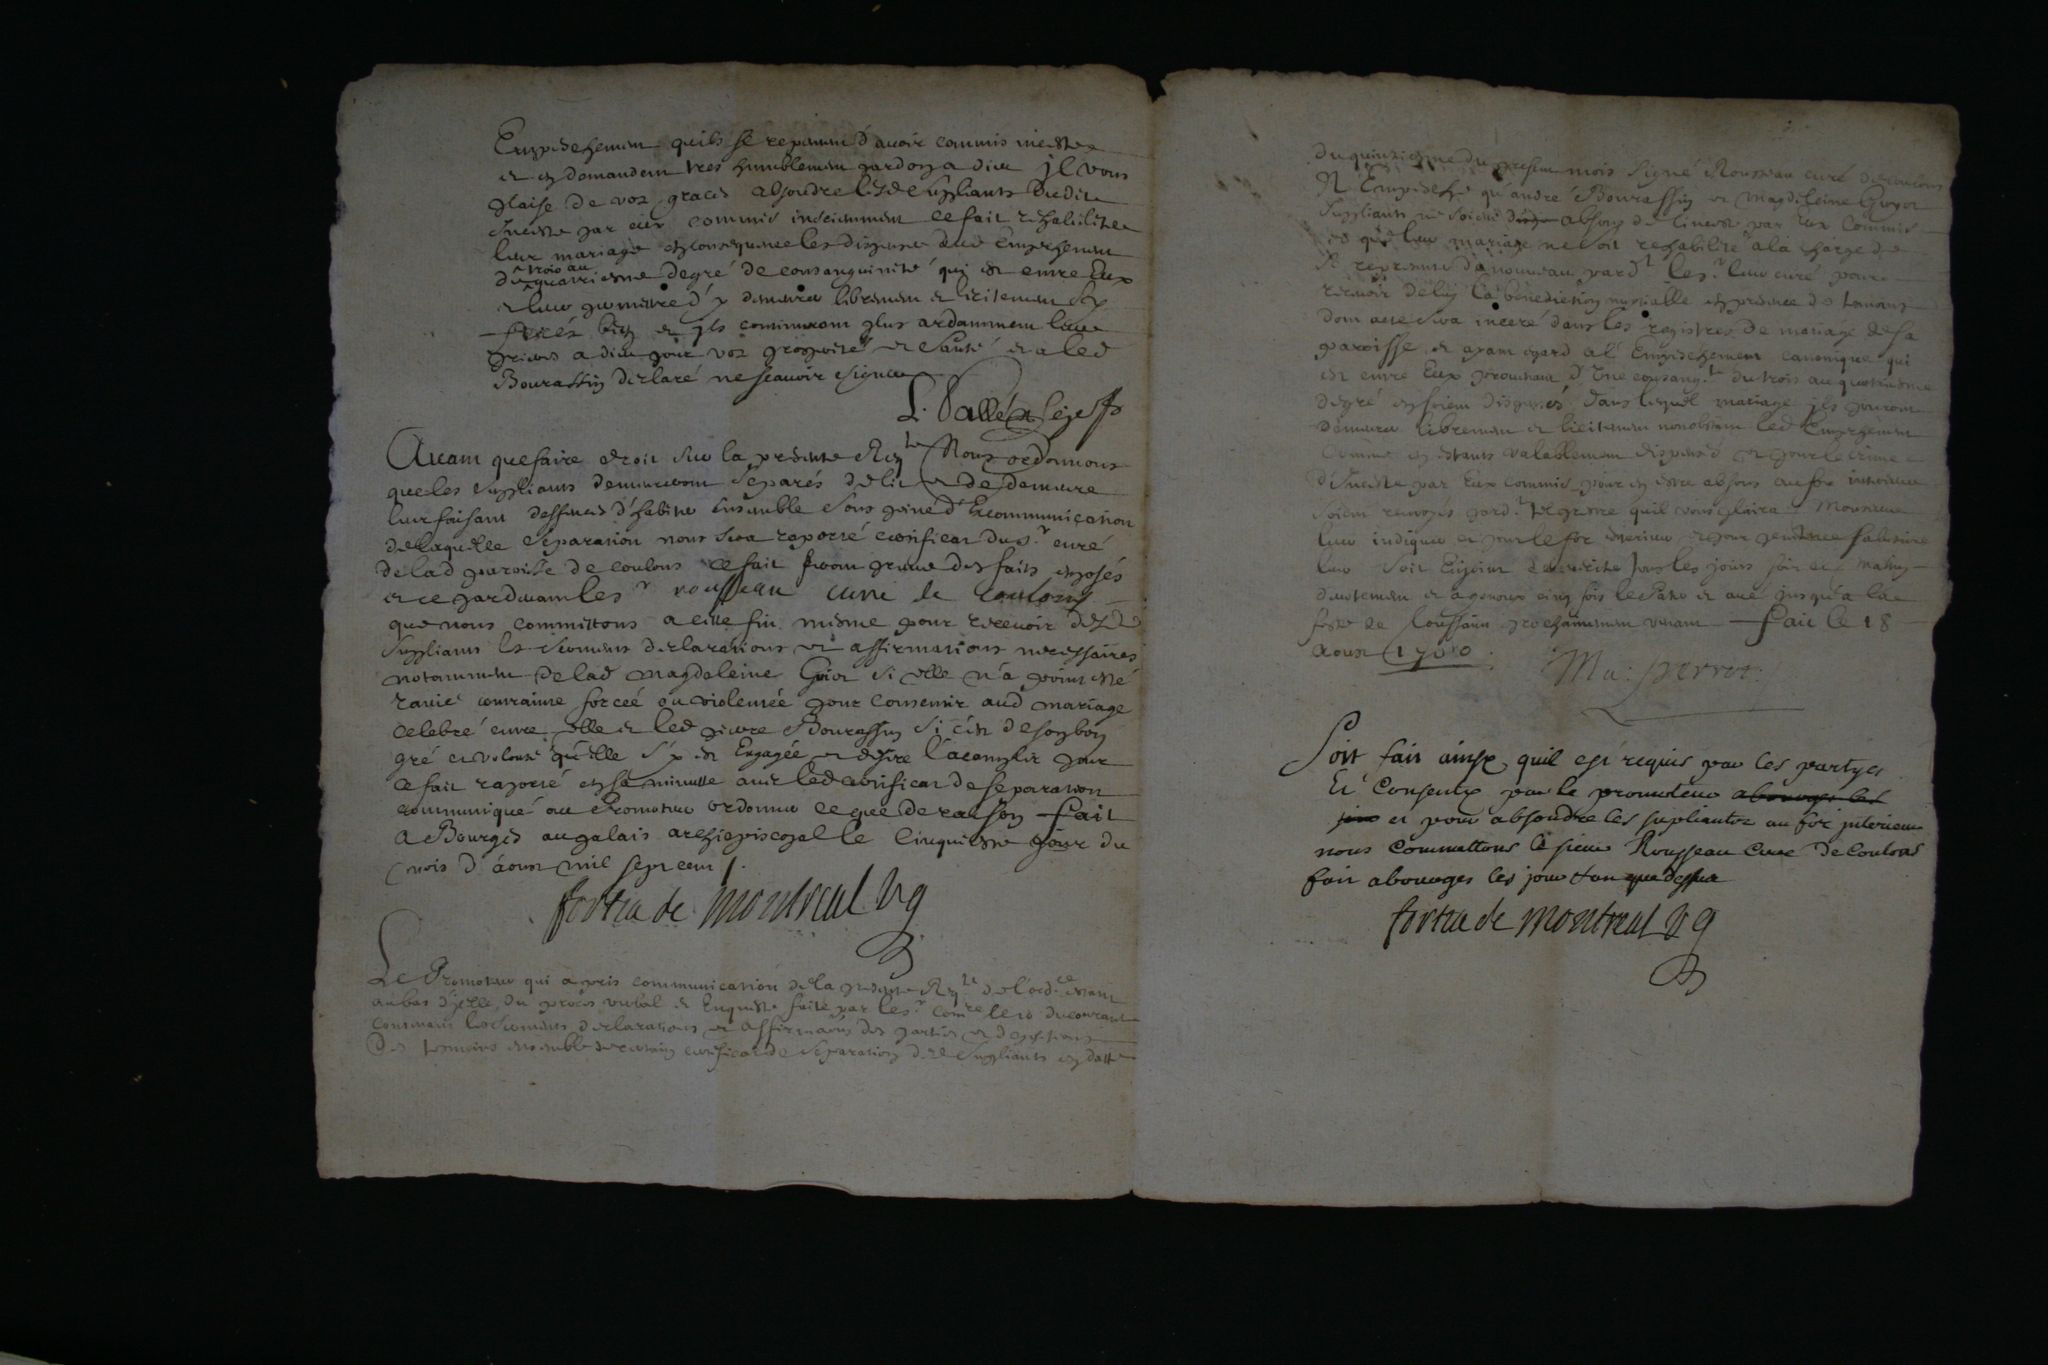 Empeschement quils se repentent d'avoir commis inceste
et en demandent tres humblement pardon a dieu jl vous
plaise de vos graces absoudre lesd suppliants dudit
Inceste par eux commis insciemment ce fait rehabiliter
leur mariage en consequence les dispenser dud Empeschement
du trois au quatriesme degré de consanguinité qui est entre Eux
et leur permettre d'y demeurer librement et licitement
bien et jls continueront plus ardamment leurs
prieres a dieu pour vos prosperité et santé et a led
Bourassin declaré ne scavoir signer
L. Vallée
Avant que faire droit sur la presente Reqte Nous ordonnons
que les suppliants demeureront separés de lit et de demeure
leur faisant deffences d'habiter Ensemble sous peine d'Excommunication
de laquelle separation nous sera raporté certificat du sr curé
de lad paroisse de coulons ce fait feront preuve des faits exposés
et ce pardevant le sr rousseau curé de coulons
que nous committons a cette fin mesme pour recevoir desd
suppliants les serments declarations et affirmations necessaires
notamment de lad magdeleine Goior si elle n'a point esté
ravie contrainte forcée ou violentée pour consentir aud mariage
celebré entre elle et led Bourassin si c'est de son bon
gré et volonté qu'elle s'y est Engagée et desire l'acomplir pour
ce fait raporté en sa minutte avec led certificat de separation
communiqué au Promoteur ordonner ce que de raison fait
a Bourges au palais archiepiscopal le cinquiesme jour du
mois d'aoust mil sept cent
fortia de montreal vg
Le Promoteur qui a pris communication de la presente Reqte de l'ordce estant
au bas d'jcelle, du procès verbal et Enqueste faite par le sr comre le 10 du courant
contenant les serments declarations et affirmations des parties et depositions
des temoins ensemble certificat de separation desd suppliants en datte
du quinziesme du present mois signé Rousseau curé de coulons
N'Empesche qu'andré Bourassin et Magdeleine Goyor
suppliants ne soient absous de l'inceste par Eux commis
et que leur mariage ne soit rehabilité a la charge de
se representer de nouveau pardt le sr leur curé pour
recevoir de luy la benediction nuptialle en presence de temoins
dont acte sera inceré dans les registres de mariage de sa
paroisse et ayant egard a l'Empeschement canonique qui
est entre Eux provenant d'Une consangte du trois au quatriesme
degré en soient dispensés dans lequel mariage jls pourront
demeurer librement et licitement nonobstant led Empeschement
comme en estants valablement dispensé et pour le crime
d'Inceste par Eux commis pour en estre absous au for interieur
soient renvoyés pardt tel prestre quil vous plaira Monsieur
leur indiquer et pour le for exterieur et pour penitence salutaire
leur soit Enjoint de reciter tous les jours soir et matin
devotement et a genoux cinq fois le Pater et ave jusqu'a la
feste de Toussaint prochainement venant fait le 18
aoust 1700
Ma: perrot:
Soit fait ainsy quil est requis par les partyes
Et Consenty par le promoteur
et pour absoudre les supliantz au for jnterieur
nous Committons le sieur Rousseau Curé De Coulons
fait a bourges les jour & an que dessus
fortia de montreal vg